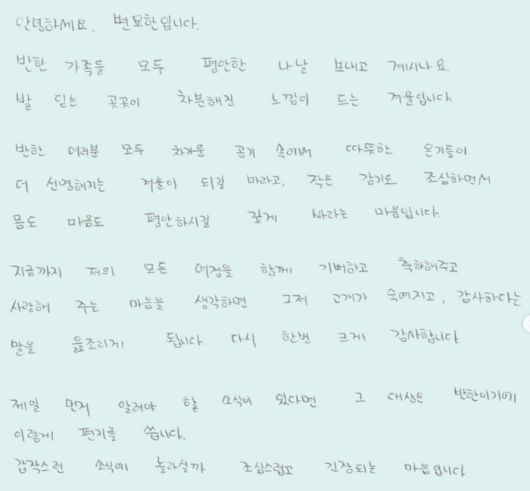 안녕하세요. 변요한입니다.
반한 가족들 모두 평안한 나날 보내고 계시나요.
발 딛는 곳곳이 차분해진 느낌이 드는 겨울입니다
반한 여러분 모두 차가운 공기 속에서 따뜻한 온기들이
더 선명해지는 겨울이 되길 바라고, 작은 감기도 조심하면서
몸도 마음도 평안하시길 깊게 바라는 마음입니다.
지금까지 저의 모든 여정을 함께 기뻐하고 축하해주고
사랑해 주는 마음을 생각하면 그저 고개가 숙여지고, 감사하다는
말을 읊조리게 됩니다. 다시 한번 크게 감사합니다
제일 먼저 알려야 할 소식이 있다면 그 대상은 반한이기에
이렇게 편지를 씁니다.
갑작스런 소식에 놀라실까 조심스럽고 긴장되는 마음입니다